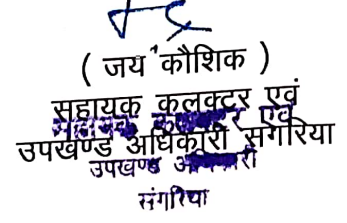 ( जय कौशिक )
सहायक कलक्टर एवं
उपखण्ड अधिकारी संगरिया
उपखण्ड अधिकारी
संगरिया